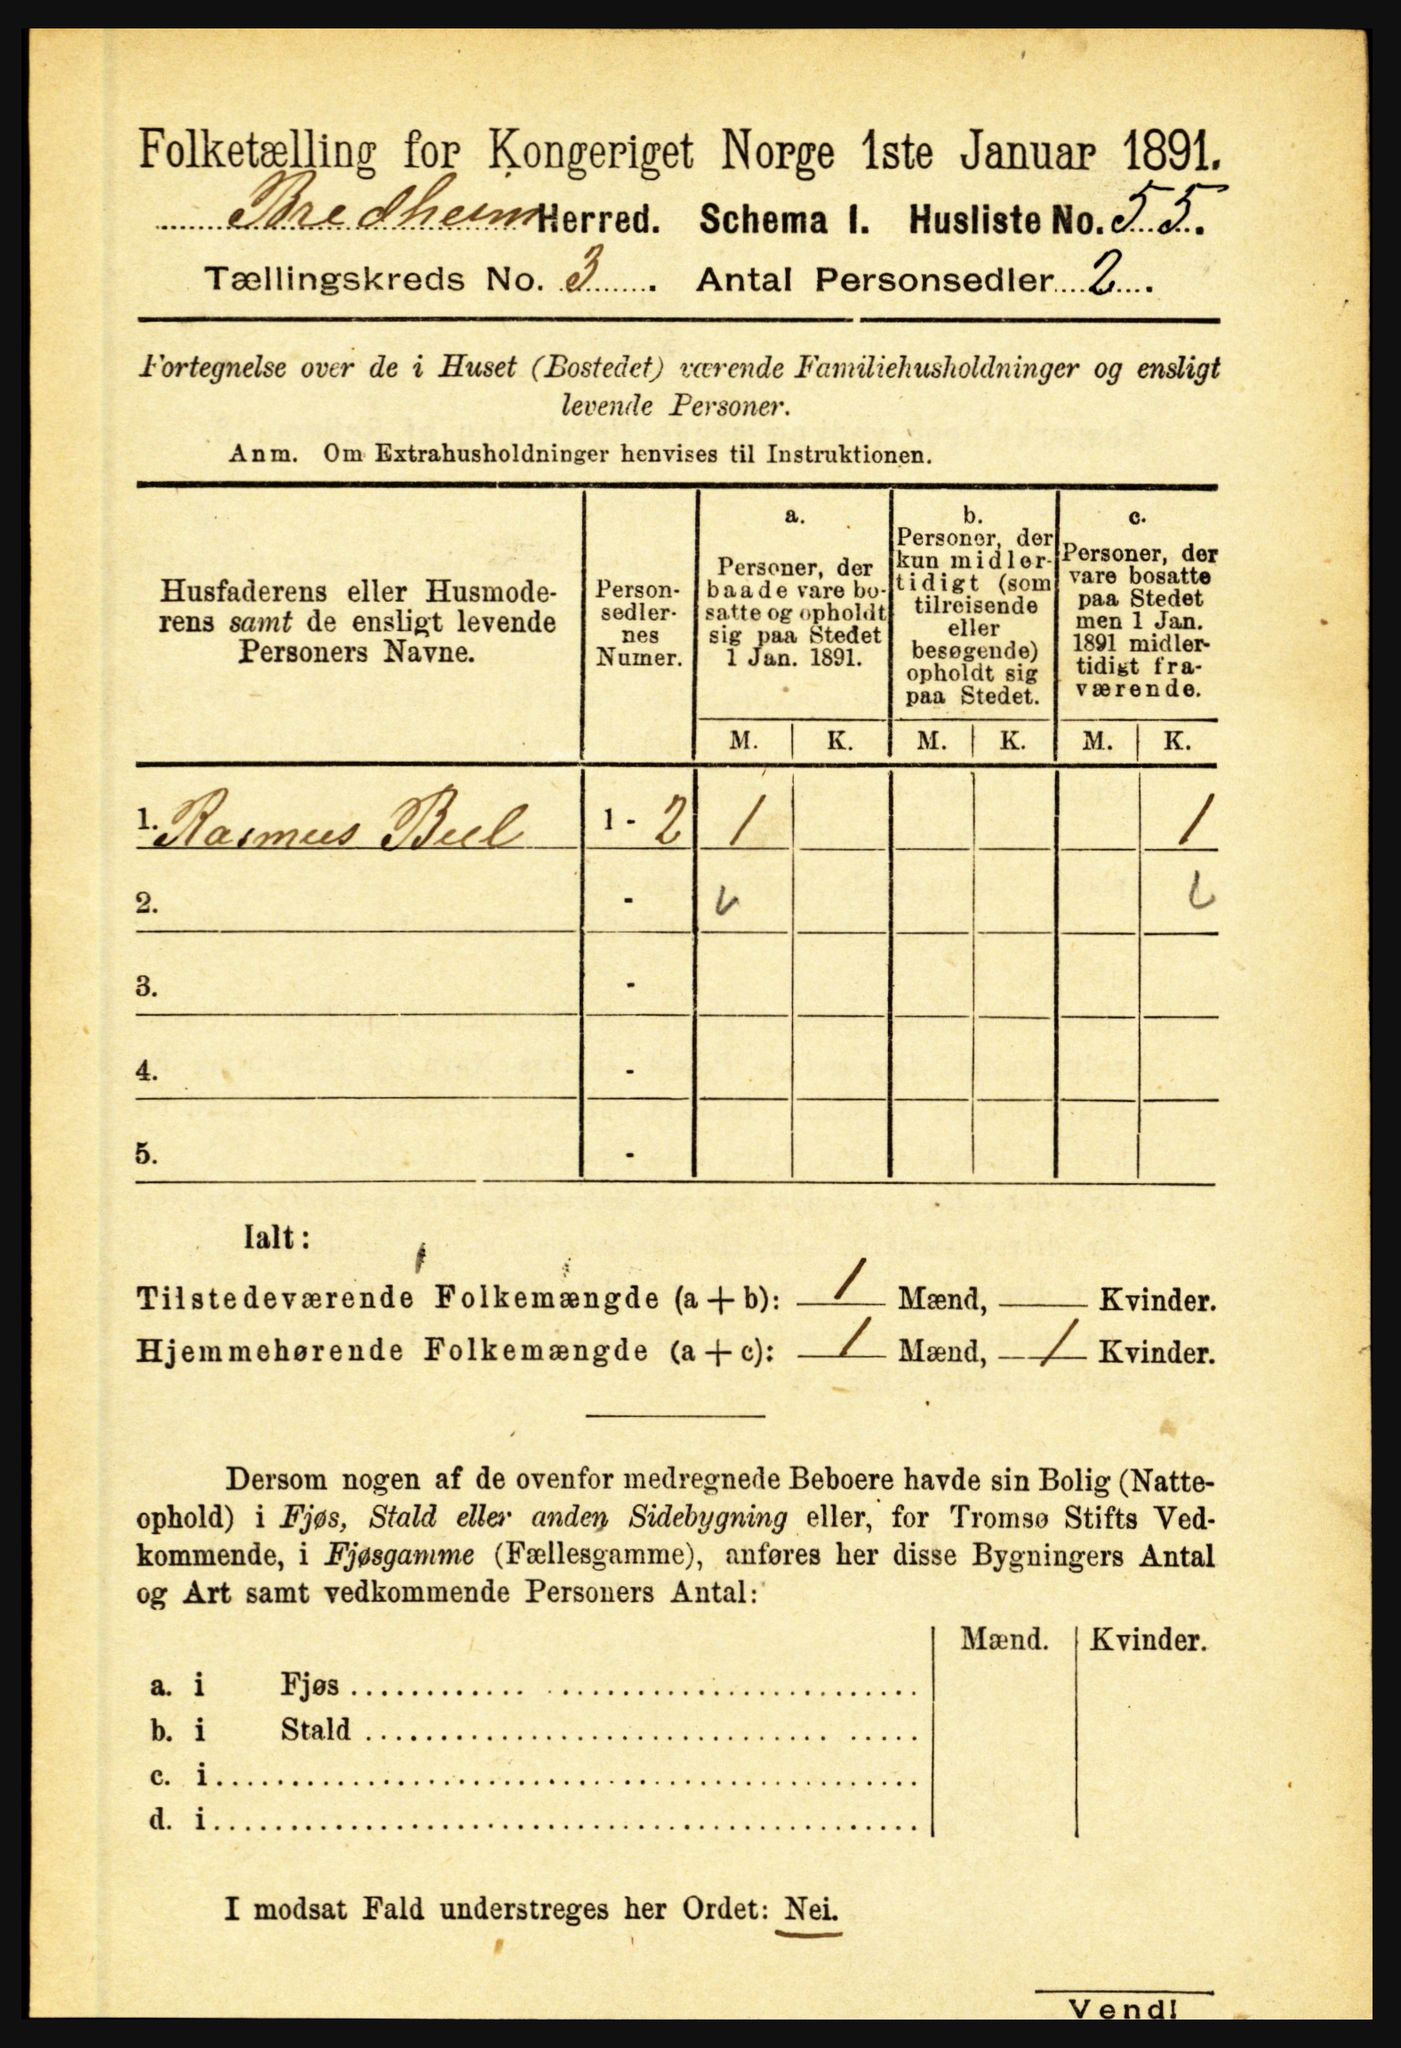 Folketælling for Kongeriget Norge 1ste Januar 1891.
Bredheim Herred. Schema I. Husliste No. 55.
Tællingskreds No. 3. Antal Personsedler 2.
Fortegnelse over de i Huset (Bostedet) værende Familiehusholdninger og ensligt
levende Personer.
Anm. Om Extrahusholdninger henvises til Instruktionen.
Husfaderens eller Husmode-
rens samt de ensligt levende
Personers Navne.
Person-
sedler-
nes
Numer.
a.
Personer, der
baade vare bo-
satte og opholdt
sig paa Stedet
1 Jan. 1891.
b.
Personer, der
kun midler-
tidigt (som
tilreisende
eller
besøgende)
opholdt sig
paa Stedet.
c.
Personer, der
vare bosatte
paa Stedet
men 1 Jan.
1891 midler-
tidigt fra-
værende.
M. K. M. K. M. K.
1. Rasmus 1 - 2 1 1
2. -
3. -
4. -
5. -
Ialt:
Tilstedeværende Folkemængde (a + b): 1 Mænd, Kvinder.
Hjemmehørende Folkemængde (a + c): 1 Mænd, 1 Kvinder.
Dersom nogen af de ovenfor medregnede Beboere havde sin Bolig (Natte-
ophold) i Fjøs, Stald eller anden Sidebygning eller, for Tromsø Stifts Ved-
kommende, i Fjøsgamme (Fællesgamme), anføres her disse Bygningers Antal
og Art samt vedkommende Personers Antal:
Mænd. Kvinder.
a. i Fjøs
b. i Stald
c. i
d. i
I modsat Fald understreges her Ordet: Nei.
Vend!